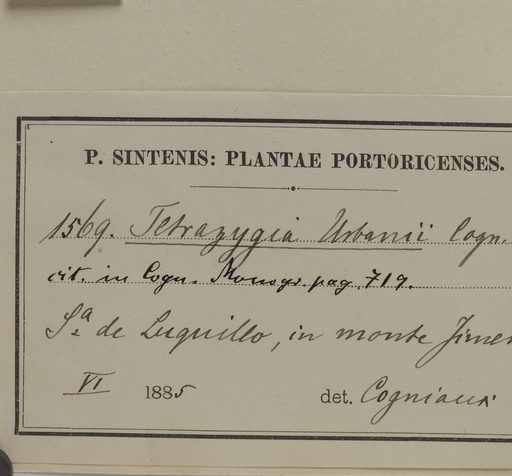 P. SINTENIS: PLANTAE PORTORICENSES.
1569. Tetrazygia Urbanii Cogn.
cit. in Cogn. Monogr. pag. 719.
Sª de Luquillo, in monte Jimen
VI 1885 det. Cogniaux